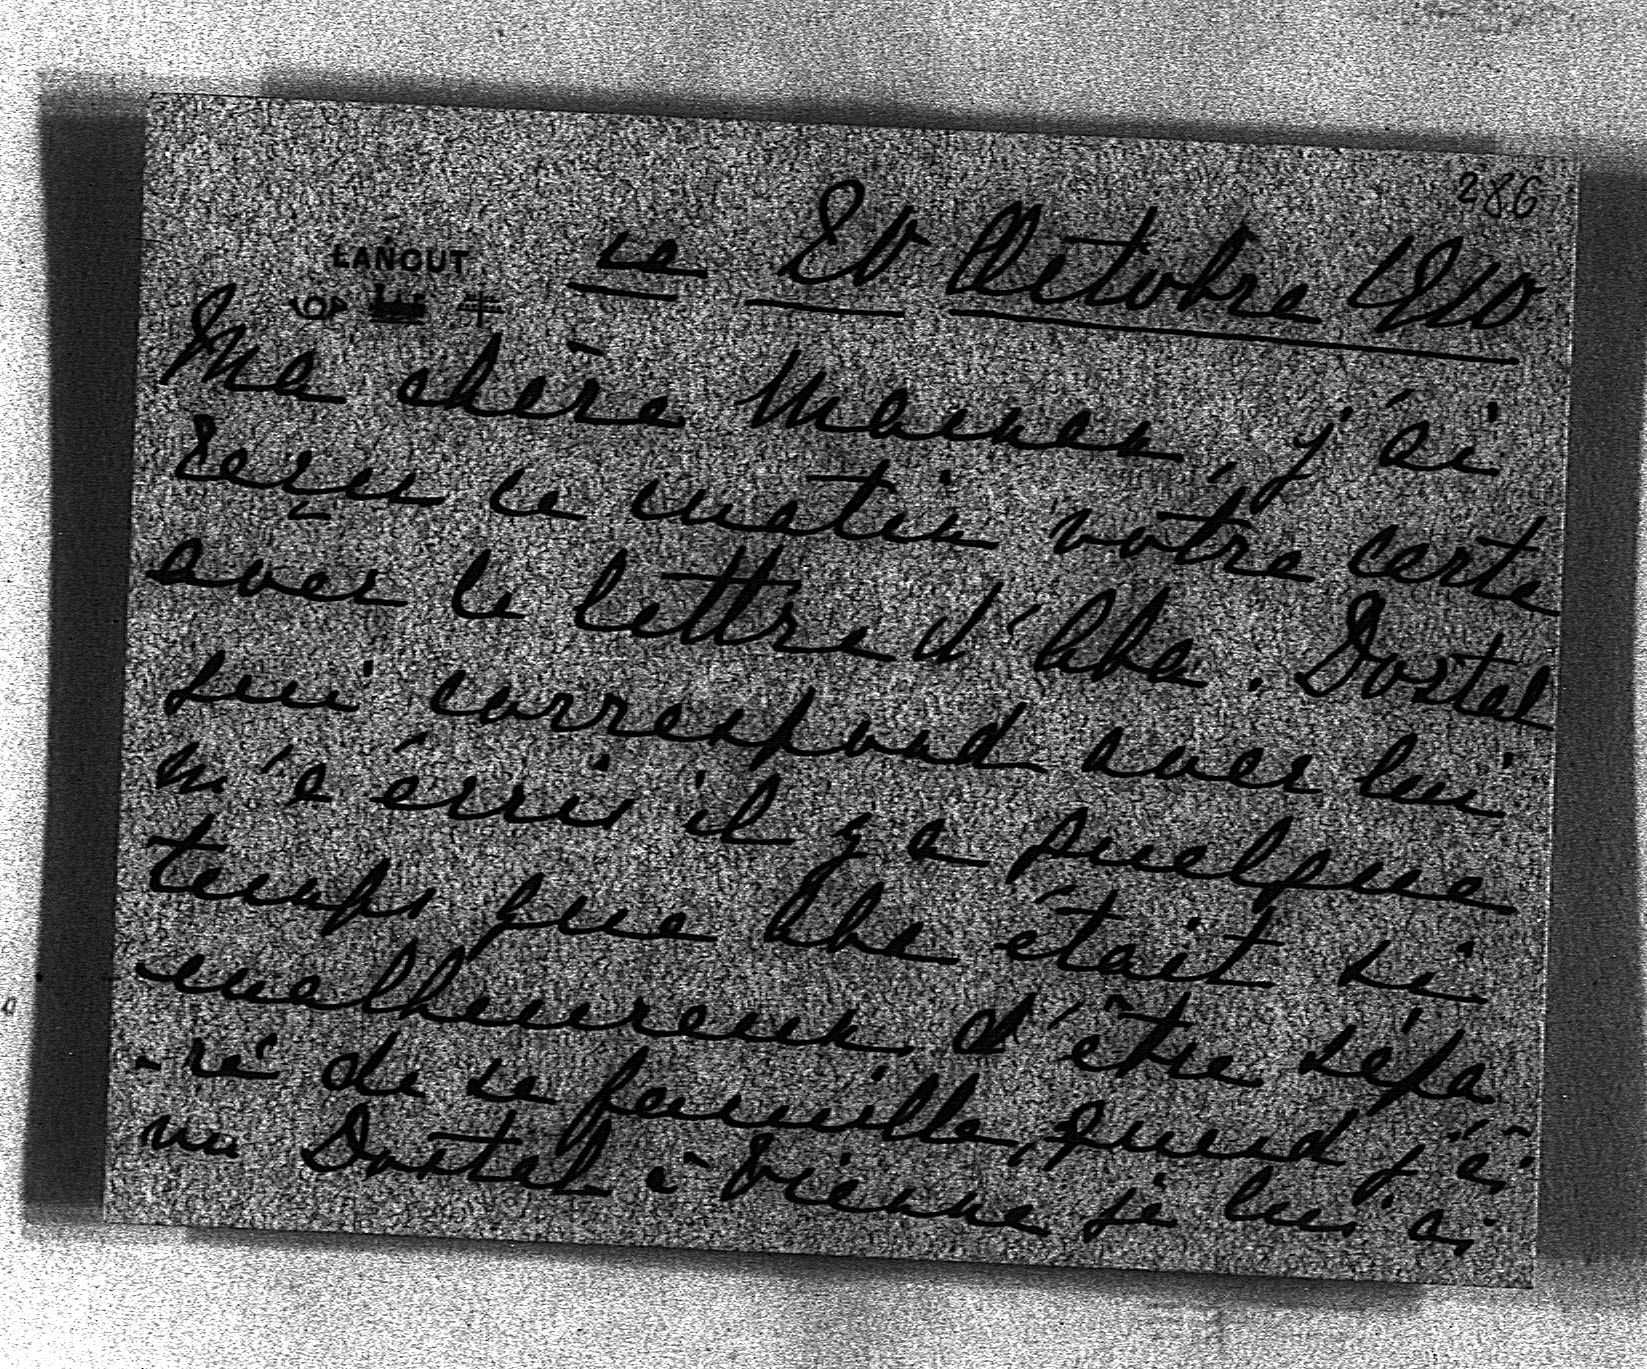 286
ŁAŃCUT
le 20 Octobre 1910
Ma chère Maman, j'ai
reçu ce matin vôtre carte
avec la lettre d'Aba. Dostal
qui correspond avec lui
m'a écris il y a quelque
temps que Aba était si
malheureux d'être sépa
-ré de sa famille, quand j'ai
vu Dostal à Vienne je lui ai